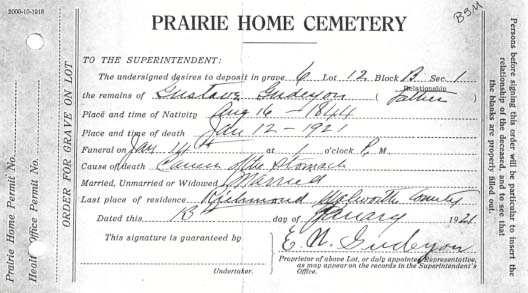 2000-10-1918
B3M
PRAIRIE HOME CEMETERY
TO THE SUPERINTENDENT:
The undersigned desires to deposit in grave 6 Lot 12 Block B Sec. 1
the remains of Gustave Gudeyon ( Relationship Father
Place and time of Nativity Aug 16 - 1844
Place and time of death Jan 12 - 1921
Funeral on Jan 14th at 1 o'clock P. M.
Cause of death Cancer of the Stomach
Married, Unmarried or Widowed Married
Last place of residence, Richmond Walworth County
Dated this 13th day of January 1921
This signature is guaranteed by E. N. Gudeyon
Undertaker.
Proprietor of above Lot, or duly appointed Representative,
as may appear on the records in the Superintendent's
Office.
Prairie Home Permit No.
Health Office Permit No.
ORDER FOR GRAVE ON LOT
Persons before signing this order will be particular to insert the
relationship of the deceased, and to see that
the blanks are properly filled out.